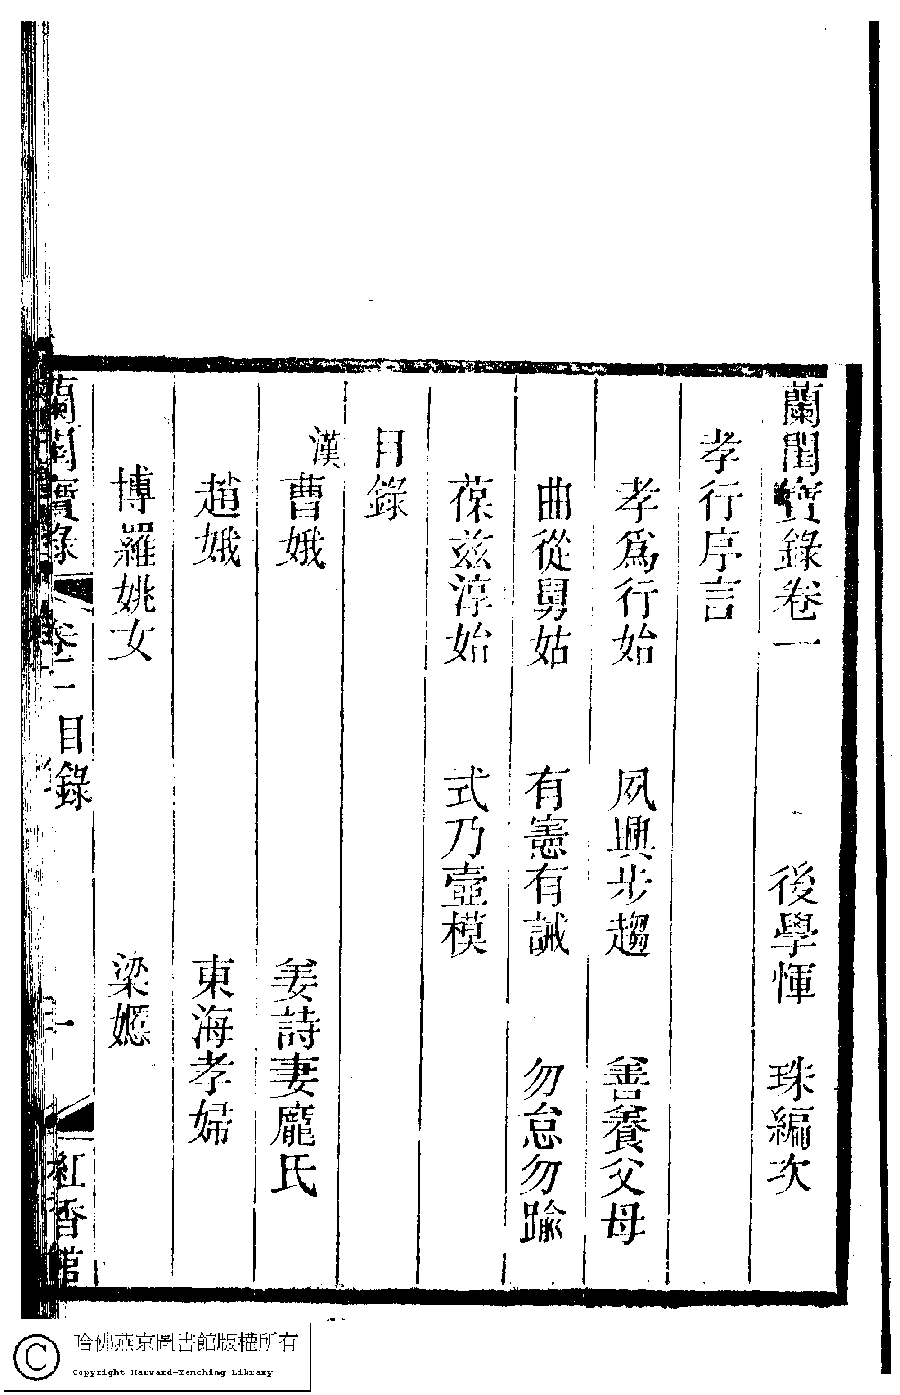 蘭閨寶錄卷一
後學惲 珠編次
孝行序言
孝爲行始 夙興步趨 善養父母
曲從舅姑 有憲有誡 勿怠勿踰
葆兹淳始 式乃壼模
目錄
漢曹娥 姜詩妻龐氏
趙娥 東海孝婦
博羅姚女 梁嫕
蘭閨寶錄 卷一 目錄 一 紅香館
哈佛燕京圖書館版權所有
Copyright Harvard-Yenching Library